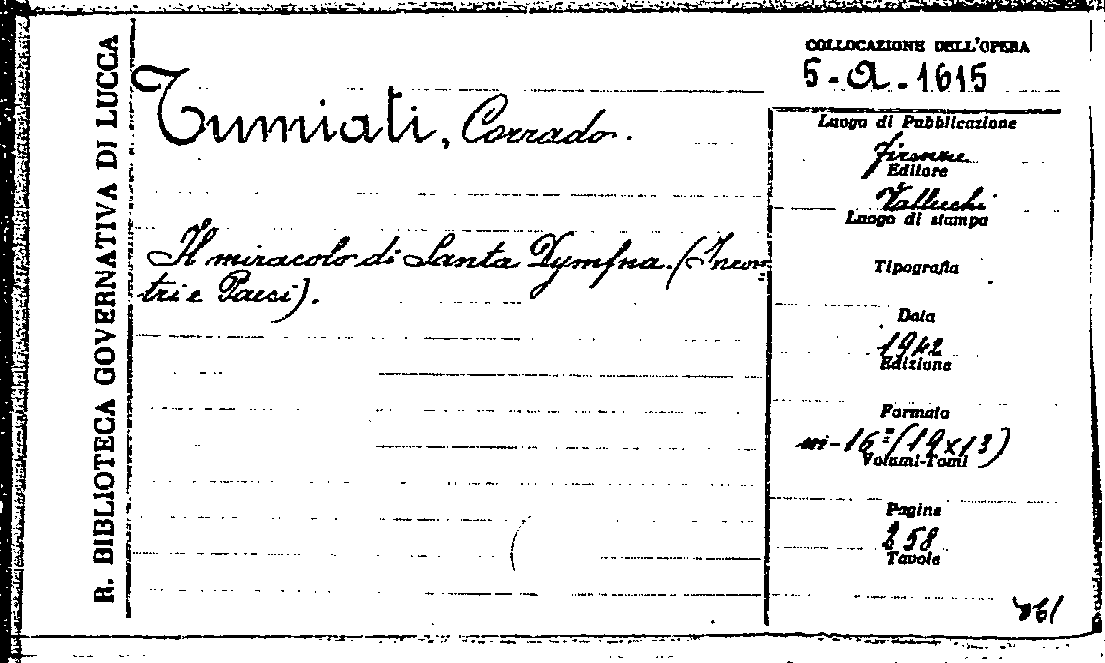 R. BIBLIOTECA GOVERNATIVA DI LUCCA
Tumiati, Corrado.
Il miracolo di Santa Dymfna. (Incon=
tri e Paesi).
COLLOCAZIONE DELL'OPERA
5-a-1615
Luogo di Pubblicazione
Firenze
Editore
Vallecchi
Luogo di stampa
Tipografia
Data
1942
Edizione
Formato
in-16º (19x13)
Volumi-Tomi
Pagine
258
Tavole